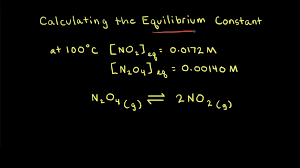 Calculating the Equilibrium Constant
at 100°C [NO₂]eq = 0.0172 M
[N₂O₄]eq = 0.00140 M
N₂O₄(g) ⇌ 2NO₂(g)